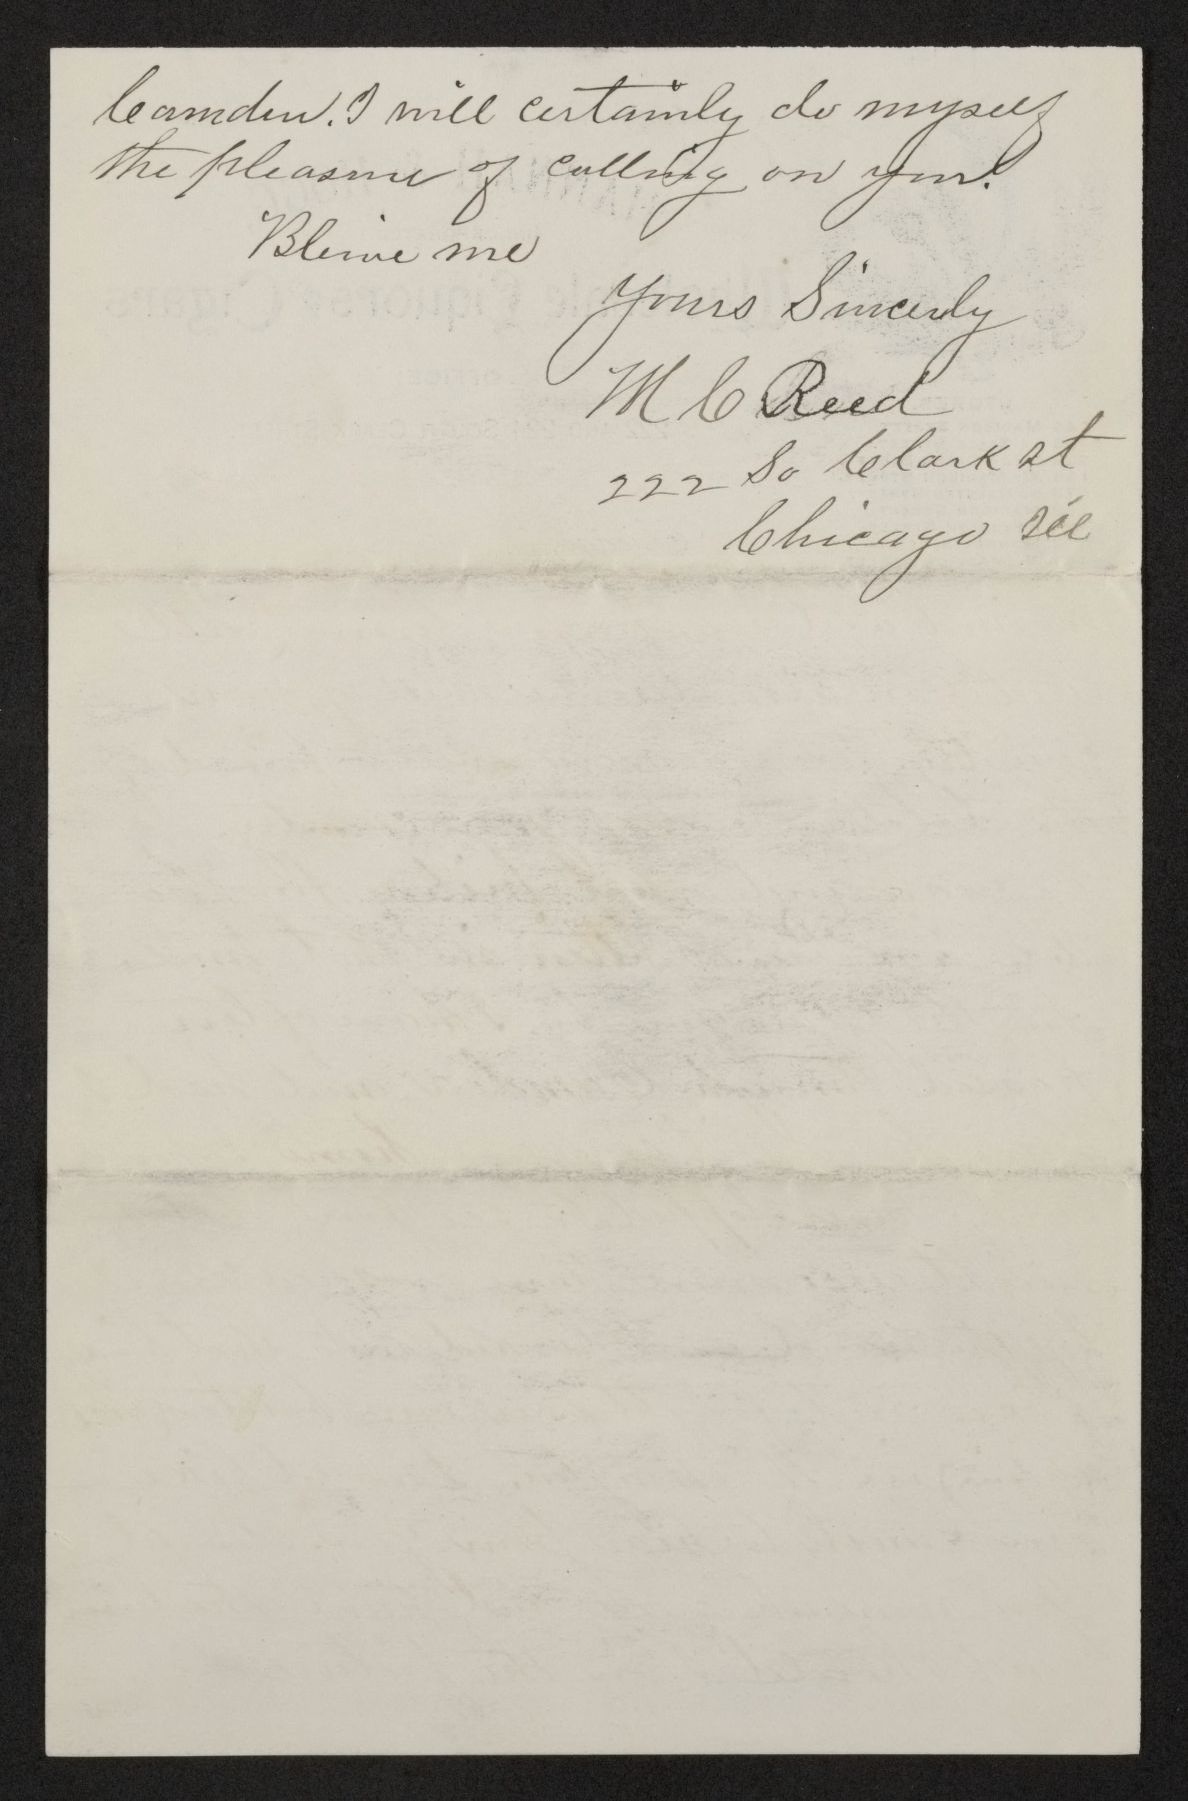 Camden. I will certainly do myself
the pleasure of calling on you.
Blieve me
Yours Sincerly
M C Reed
222 So Clark st
Chicago Ill